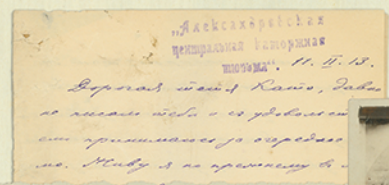 „Александровская
центральная каторжная
тюрьма“. 11. II. 13.
Дорогая тетя Катя, давно
не писал тебе и с удовольст
ем принимаюсь за очередно
Живу я по прежнему в